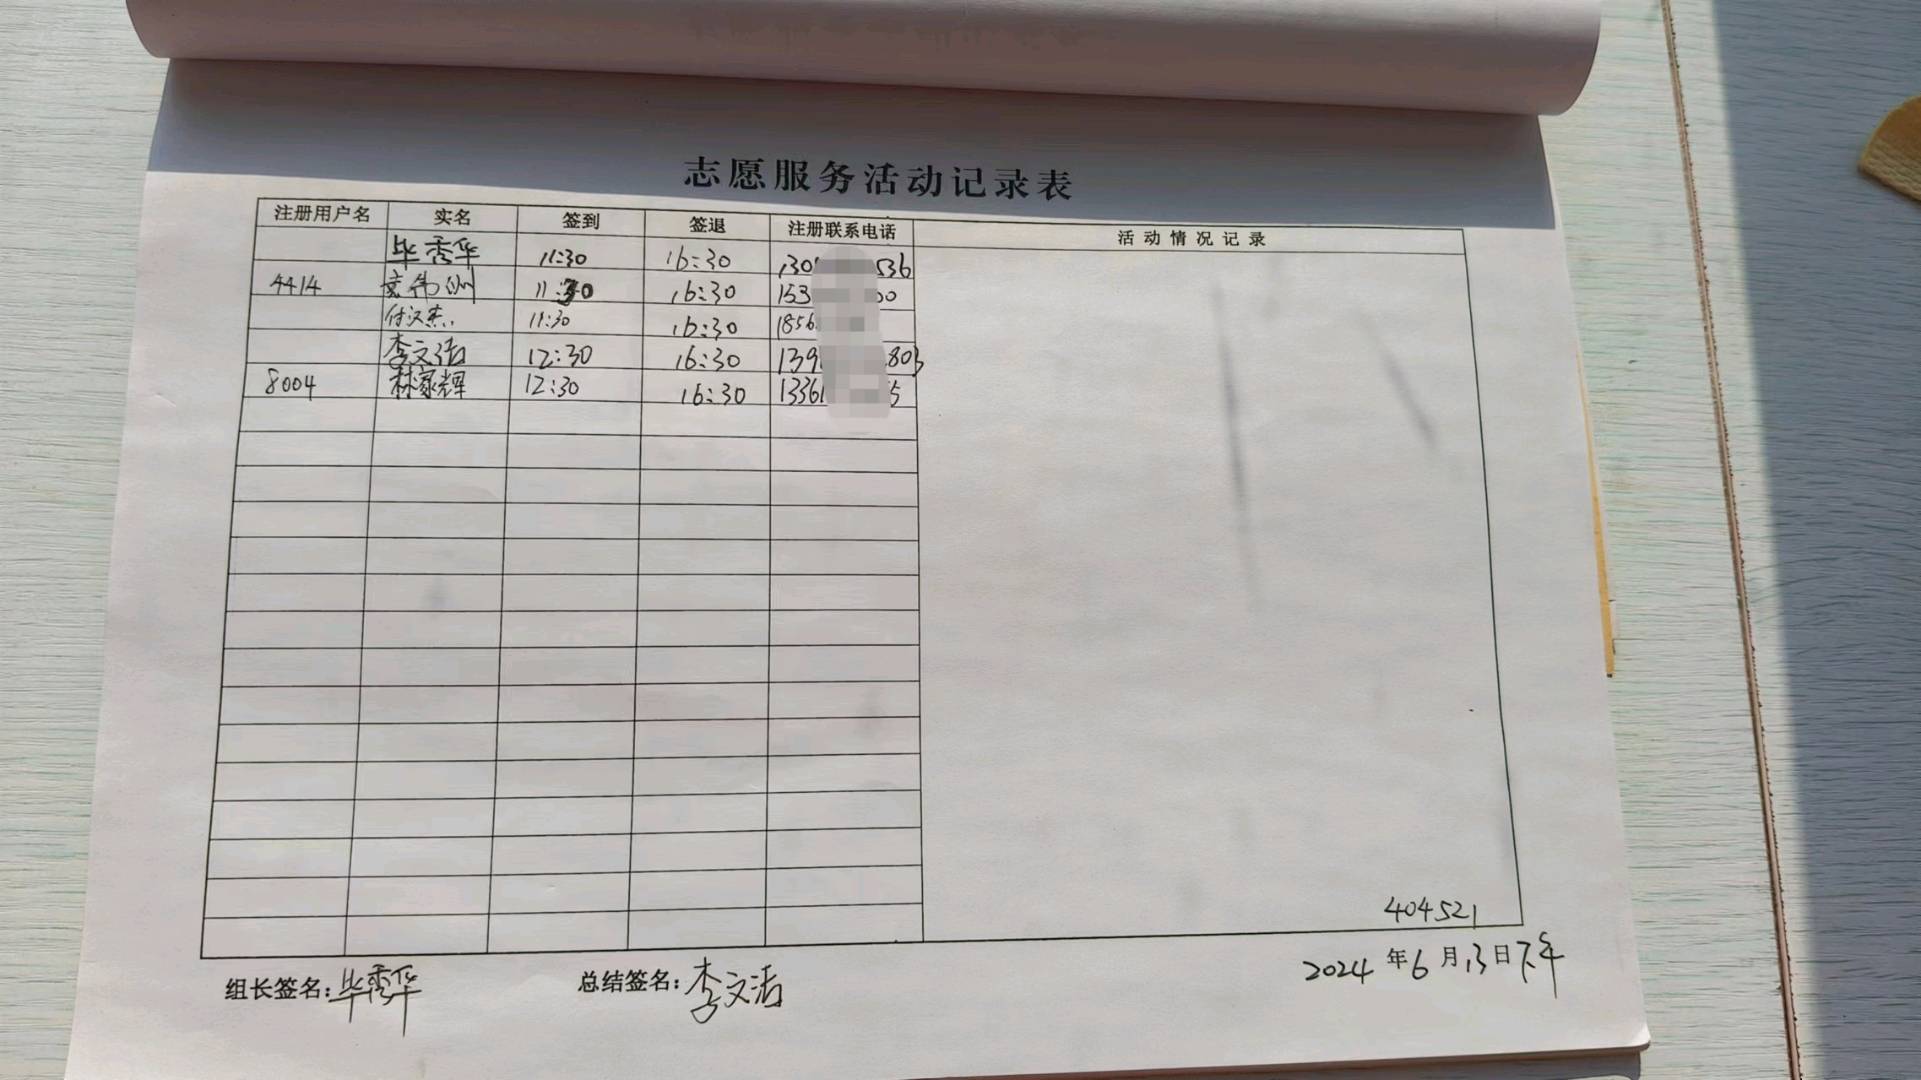 志愿服务活动记录表
注册用户名 实名 签到 签退 注册联系电话 活动情况记录
毕秀华 11:30 16:30 130 536
4414 伟洲 11:30 16:30 153 00
付汉杰 11:30 16:30 1856
李文洁 12:30 16:30 139 803
8004 林家辉 12:30 16:30 1336 5
404521
组长签名:毕秀华 总结签名:李文洁 2024年6月13日下午